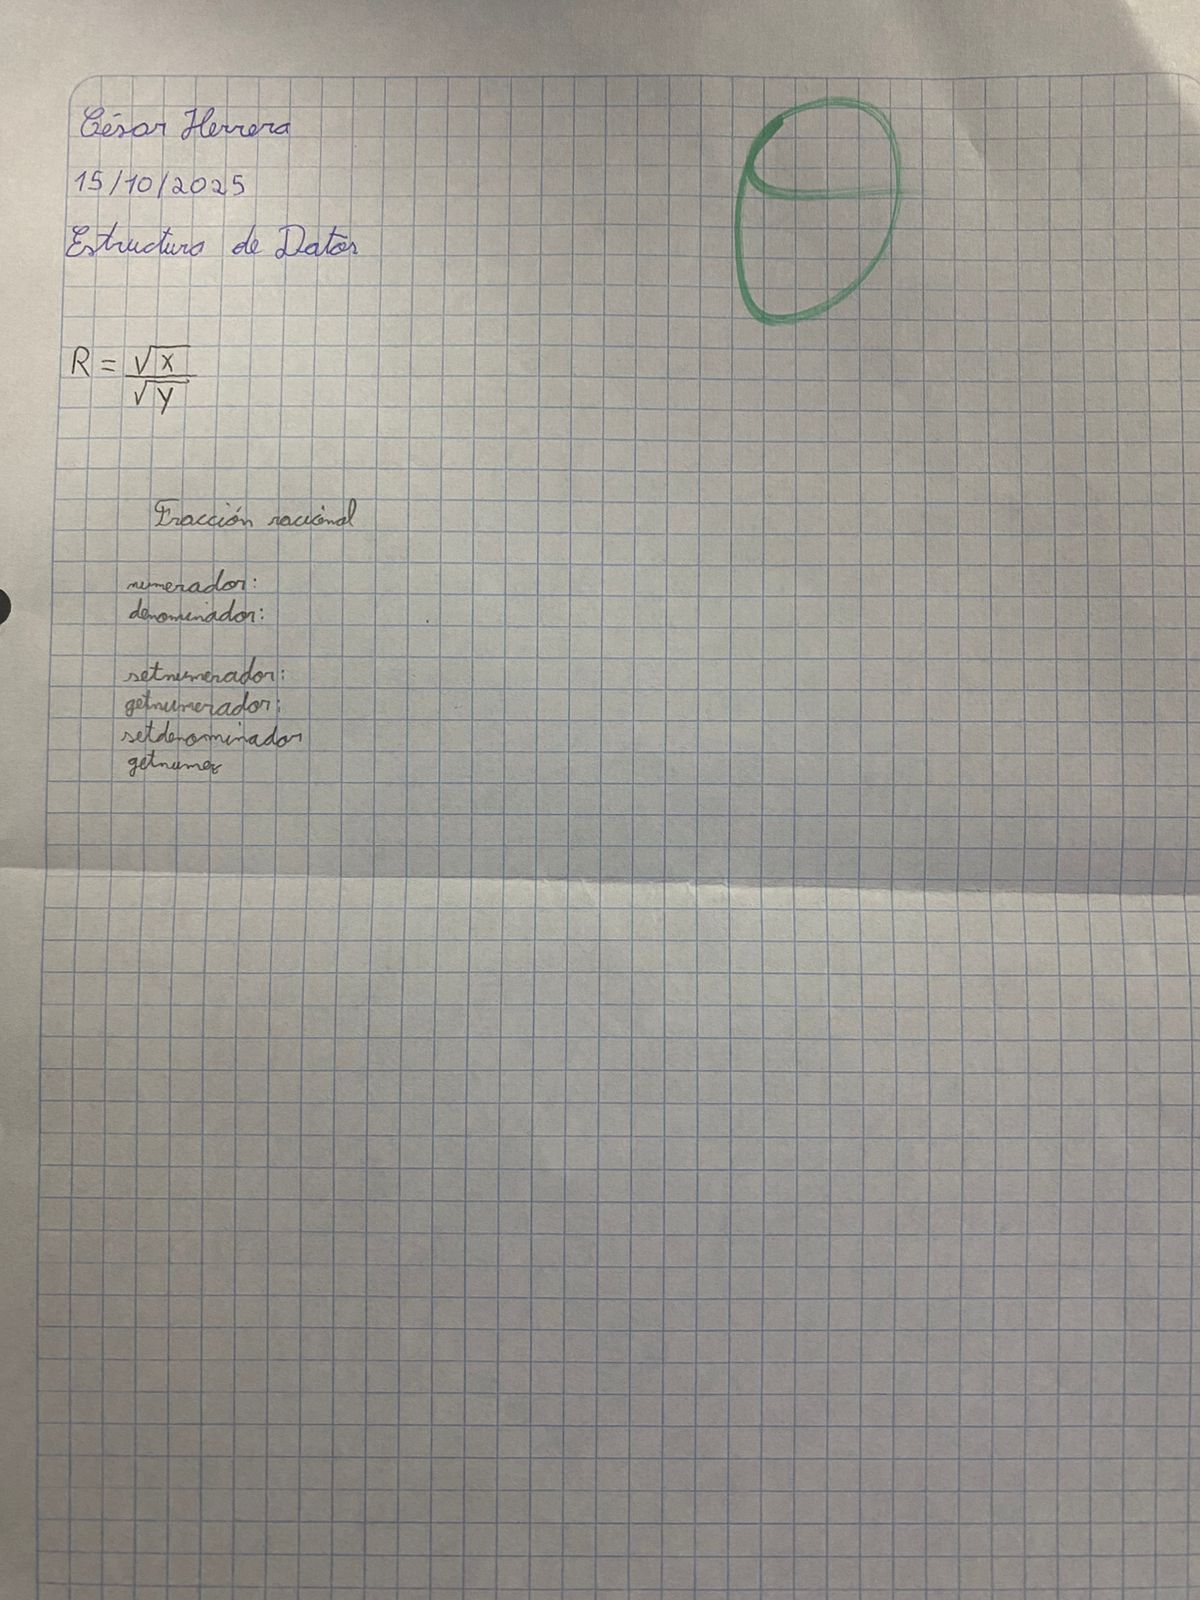 César Herrera
15/10/2025
Estructura de Datos
R = √x / √y
Fracción racional
numerador:
denominador:
setnumerador:
getnumerador:
setdenominador
getnumer